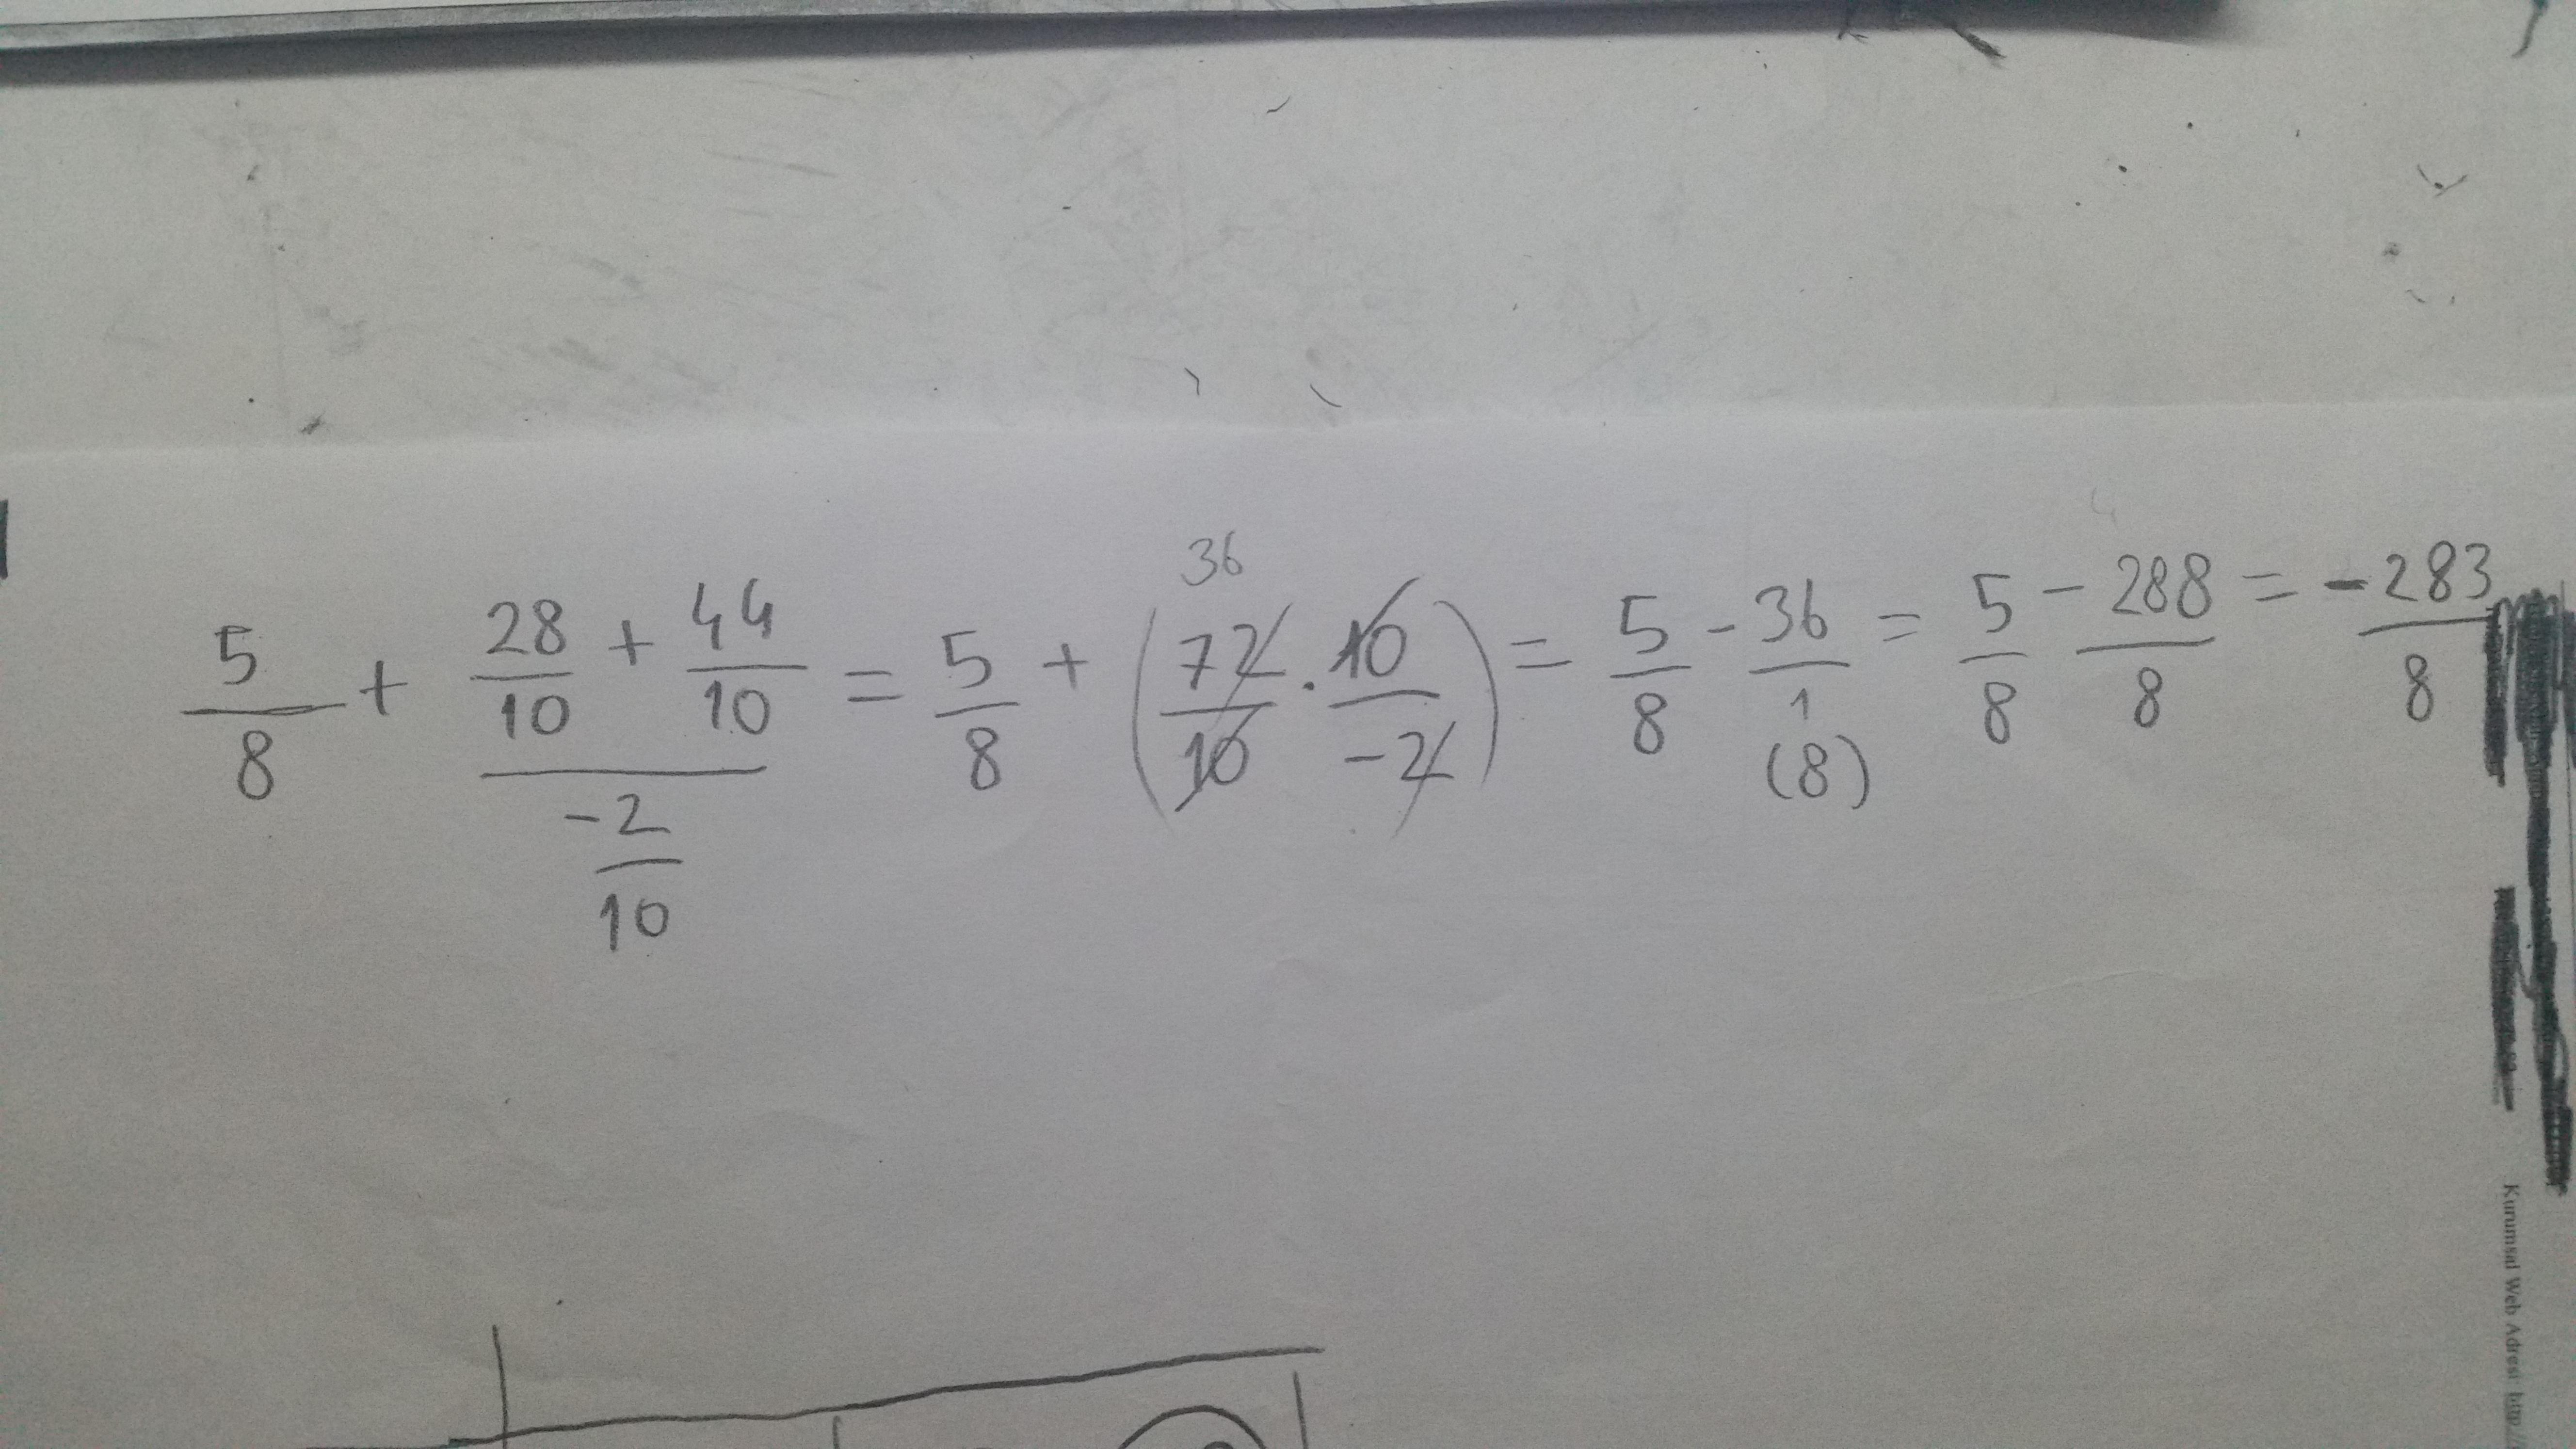 5/8 + (28/10 + 44/10)/(-2/10) = 5/8 + (72/10 . 10/-2) = 5/8 - 36/1 = 5/8 - 288/8 = -283/8
36
(8)
Kurumsal Web Adresi http://